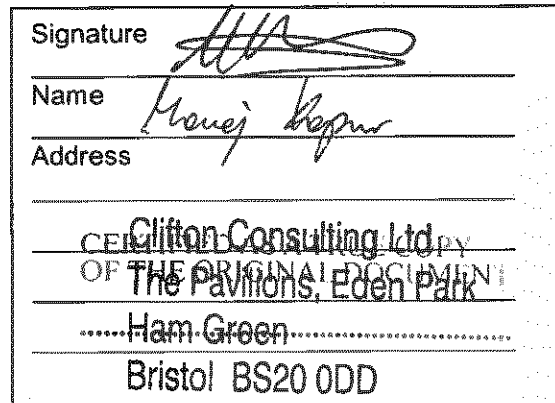 Signature
Name Manoj Kapur
Address
Clifton Consulting Ltd
COPY
OF THE ORIGINAL DOCUMENT
The Pavilions, Eden Park
Ham Green
Bristol BS20 0DD